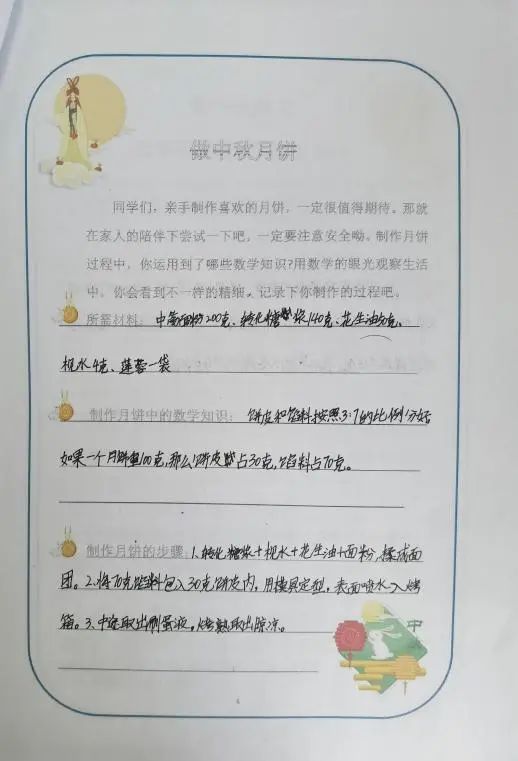 做中秋月饼
同学们，亲手制作喜欢的月饼，一定很值得期待。那就
在家人的陪伴下尝试一下吧，一定要注意安全呦。制作月饼
过程中，你运用到了哪些数学知识?用数学的眼光观察生活
中，你会看到不一样的精细。记录下你制作的过程吧。
所需材料： 中筋面粉200克、转化糖浆140克、花生油50克、
枧水4克、莲蓉一袋
制作月饼中的数学知识： 饼皮和馅料按照3:7的比例分好
如果一个月饼重100克,那么饼皮占30克,馅料占70克。
制作月饼的步骤：1.转化糖浆+枧水+花生油+面粉,揉成面
团。2.将70克馅料包入30克饼皮内,用模具定型,表面喷水入烤
箱。3.中途取出刷蛋液,烤熟取出晾凉。
中
4